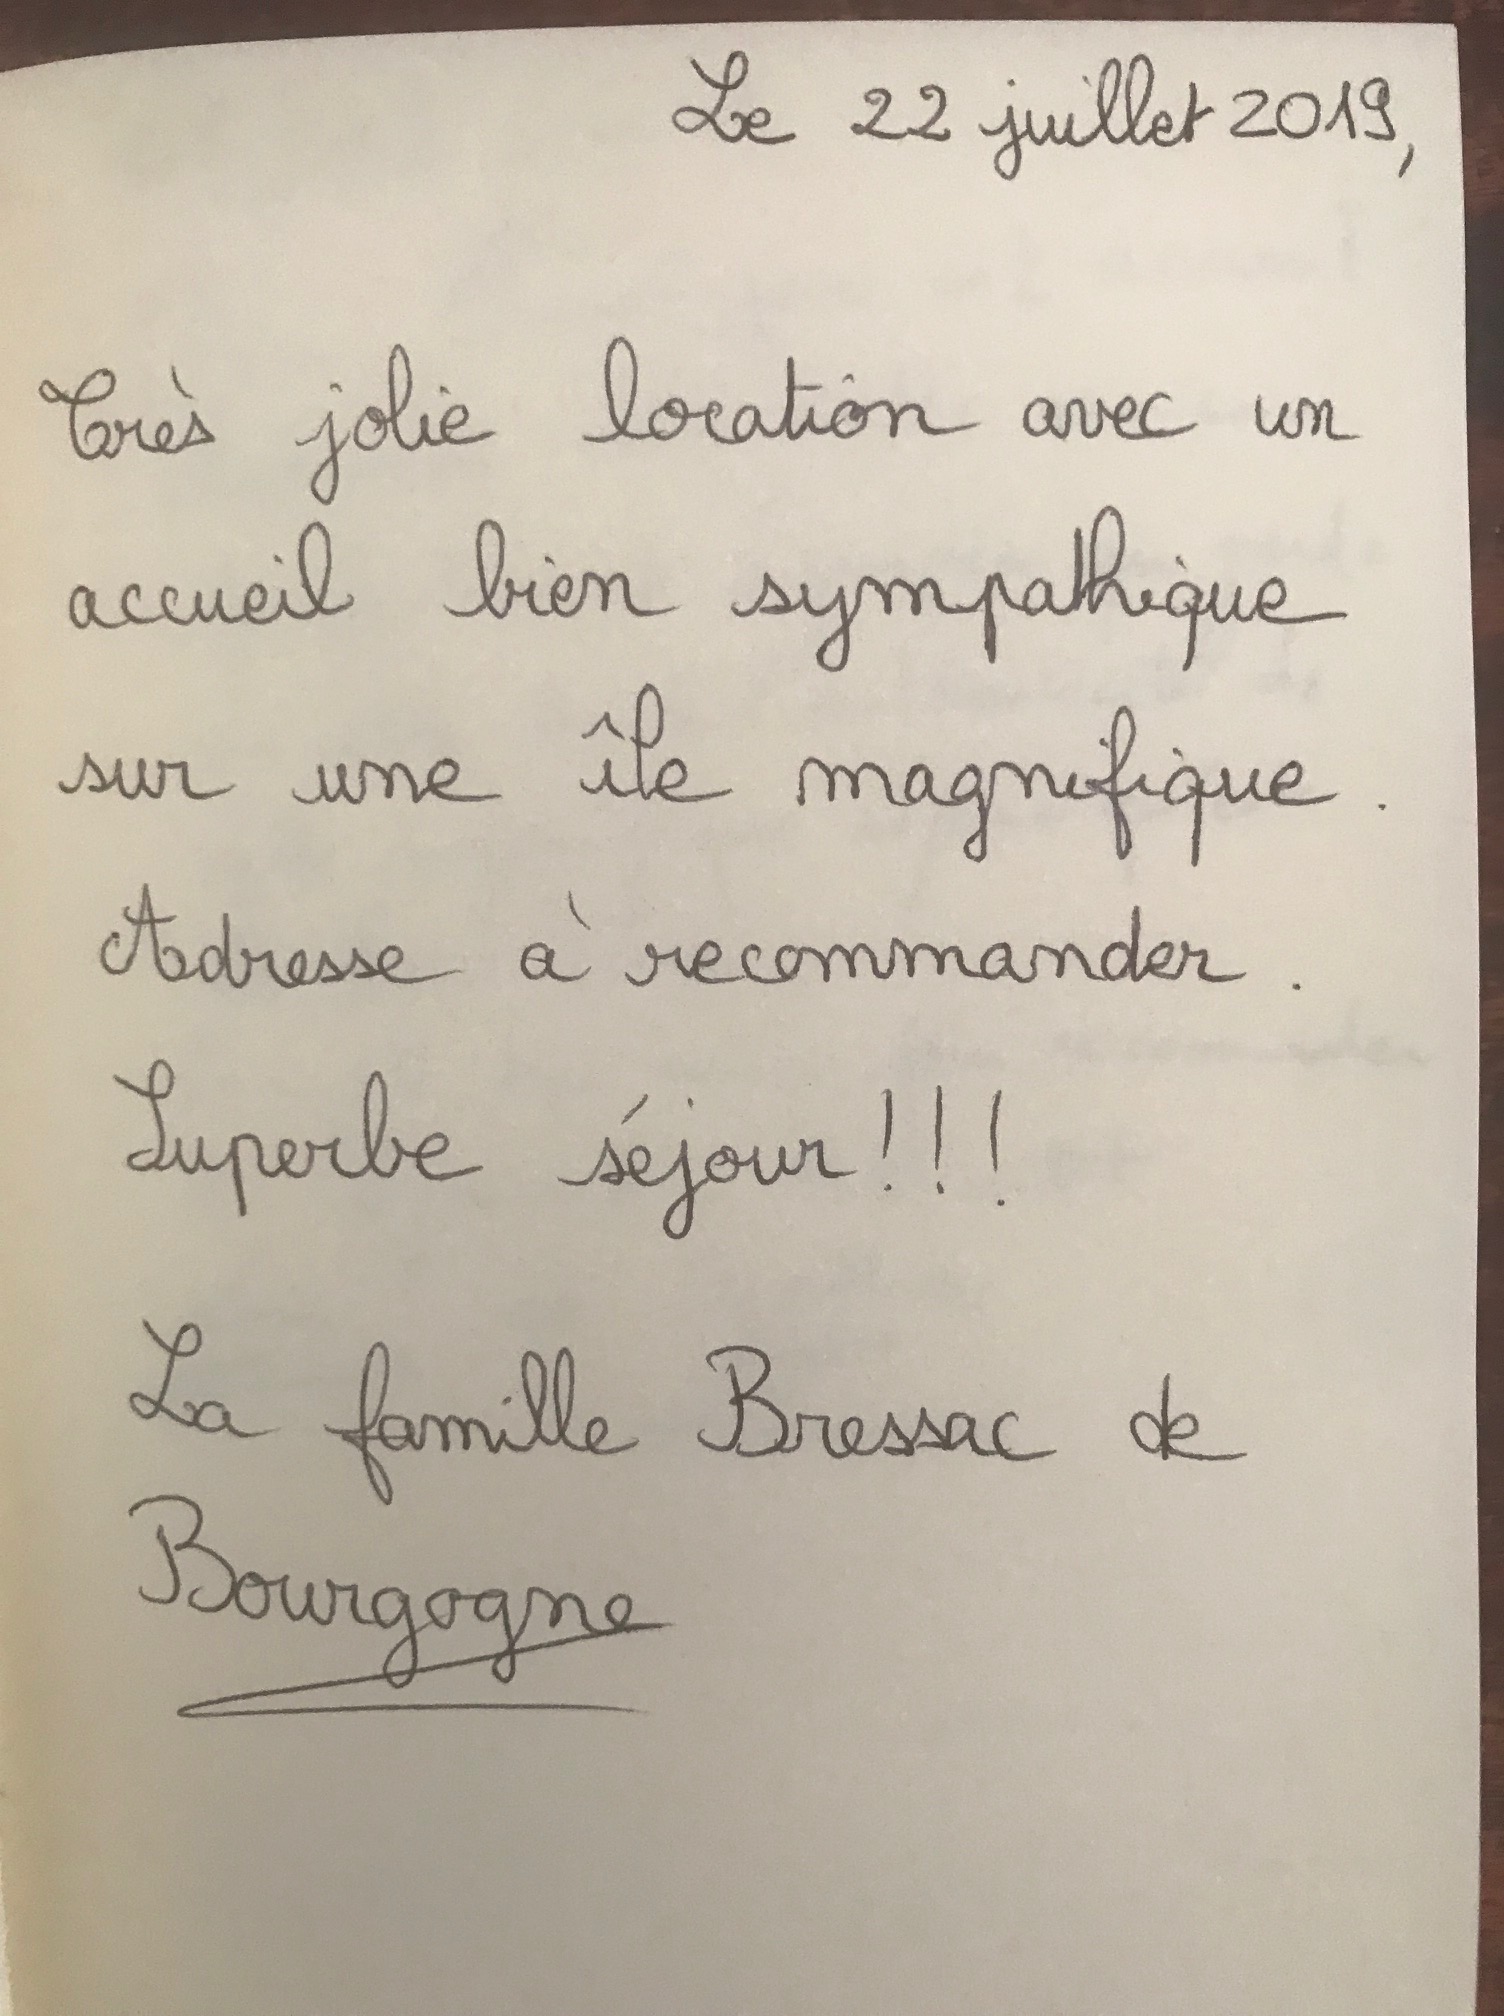 Le 22 juillet 2019,
Très jolie location avec un
accueil bien sympathique
sur une île magnifique.
Adresse à recommander.
Superbe séjour!!!
La famille Bressac de
Bourgogne